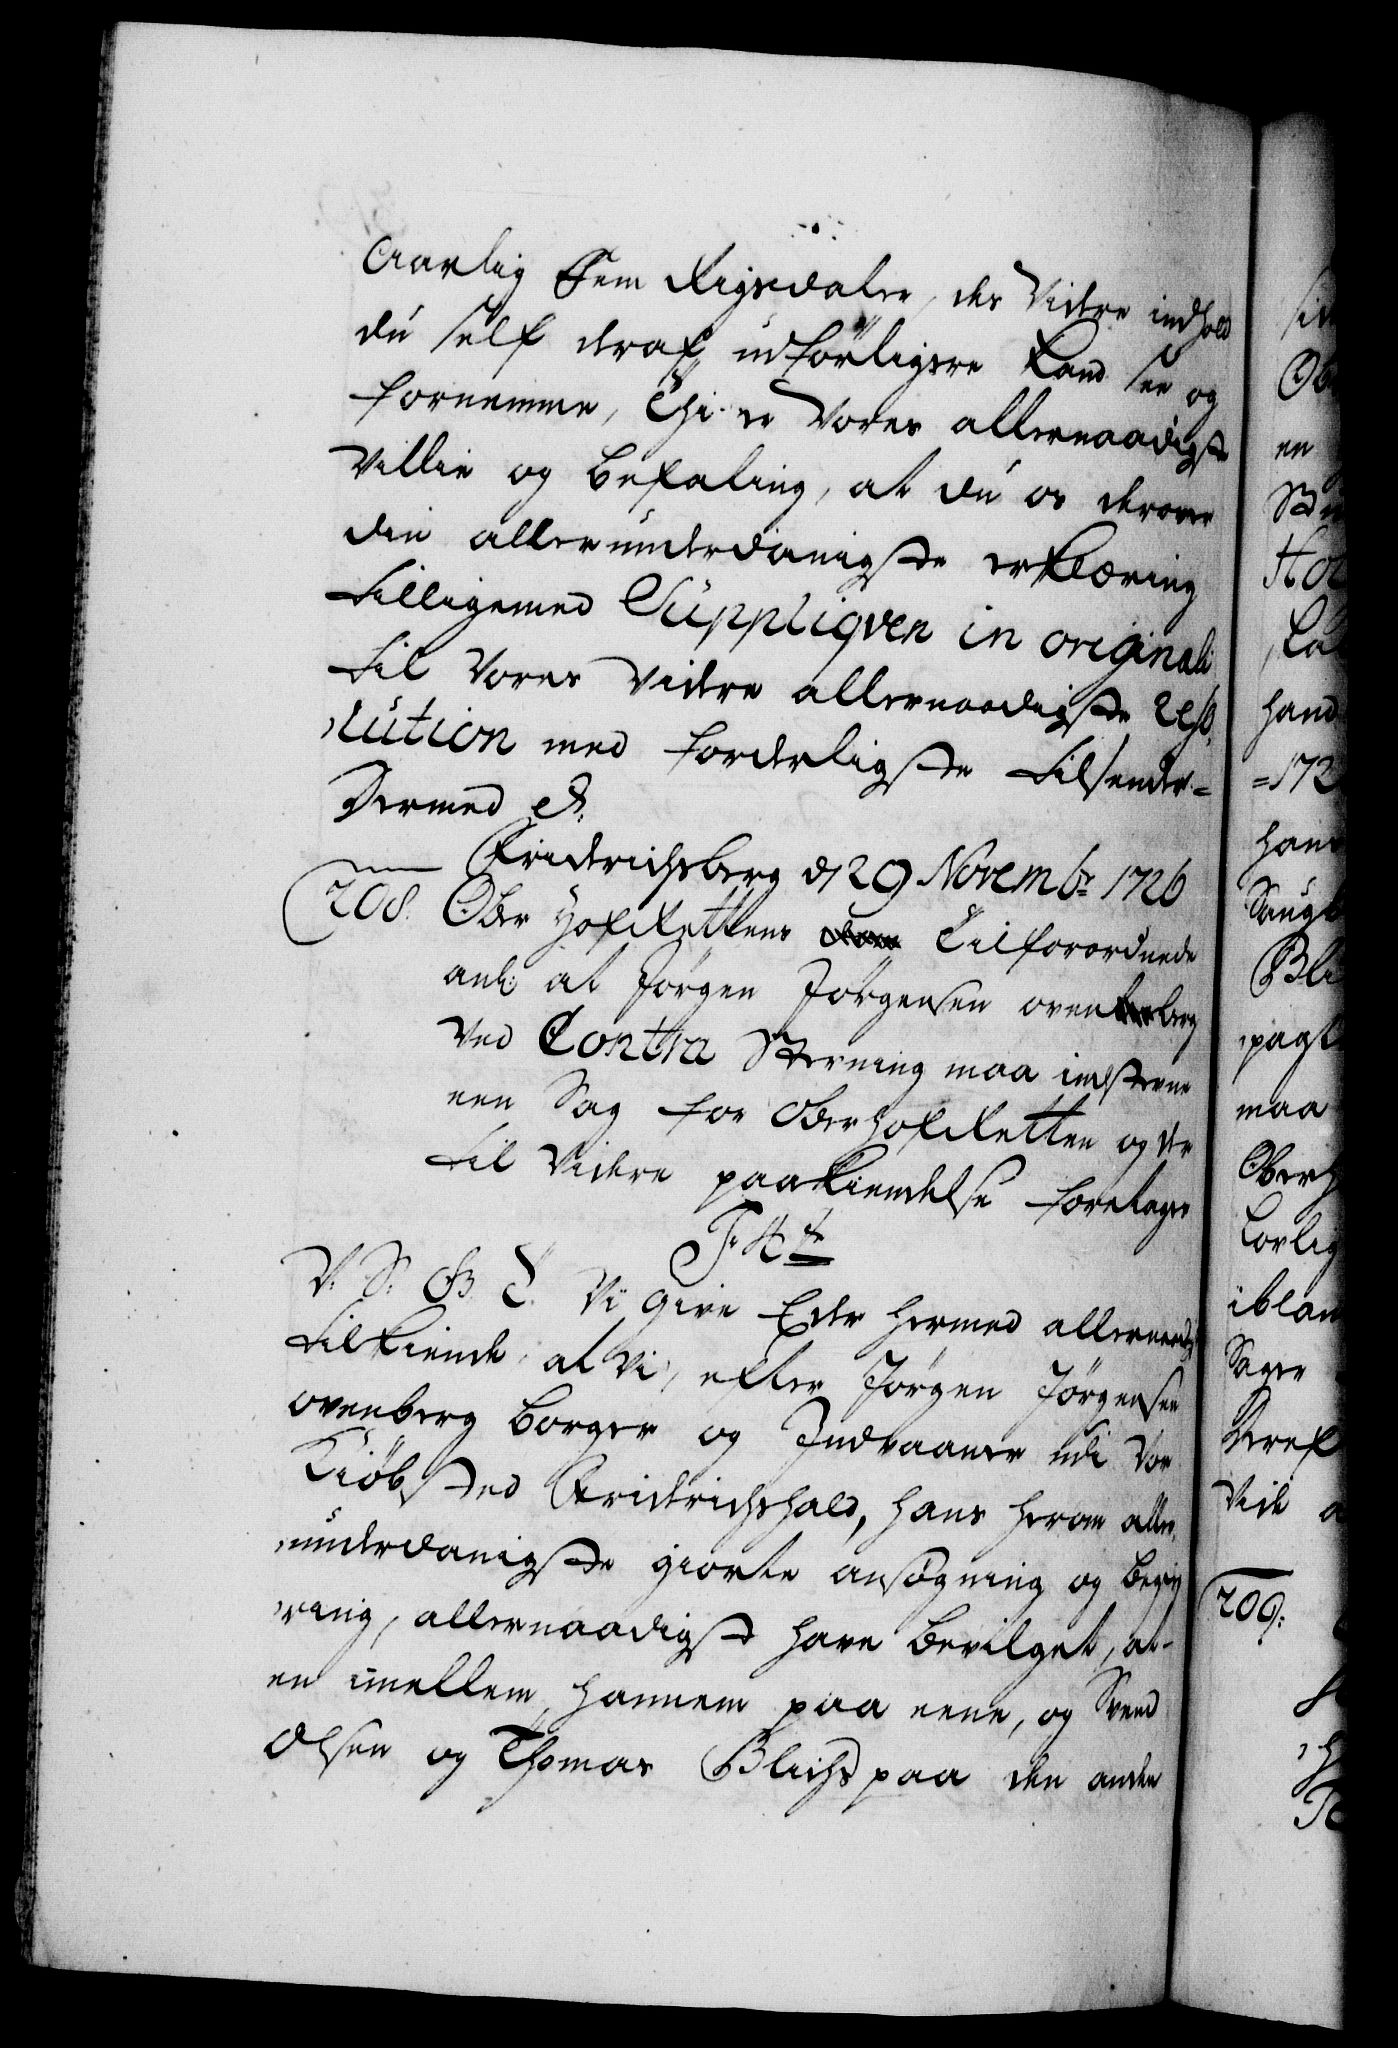 Aarlig Fem Rigsdaler, des videre indhold
du self deraf udförligere kand see og
fornemme, Thi er Vores allernaadigste
Villie og befaling, at du os derover
din allerunderdanigste erklæring
tilligemed Suppliqven in originali
til Vores videre allernaadigste Reso,
,lution med forderligste tilsender.=
Dermed &.
Fridrichsberg d 29 Novembr: 1726
208. Ober Hof Rettens Tilforordnede
anl: at Jörgen Jörgensen ovenberg
ved Contra Stevning maa indstevne
een Sag for Ober Hof Retten og der
til videre paakiendelse foretages
F. 4te
V. S. G. T. Vi give Eder hermed allernaadigst
tilkiende, at Vi, efter Jörgen Jörgensen
ovenberg borger og Indvaaner udi Vor
Kiöbsted Fridrichshald, hans herom aller,
,underdanigste giorte ansögning og begie
,ring, allernaadigst have bevilget, at
en imellem hannem paa eene, og Svend
Olsen og Thomas Blichs paa den anden
209: